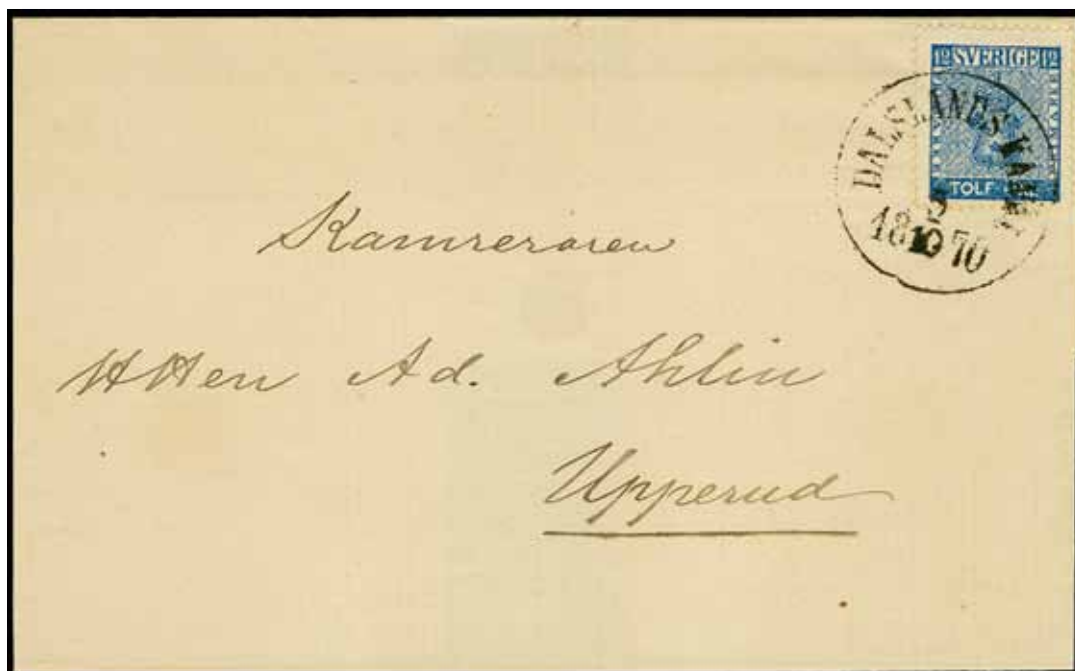 12 SVERIGE 12
DALSLANDS KANAL
TOLF
9
18 10 70
Kamreraren
HHerr Ad. Ahlin
Upperud